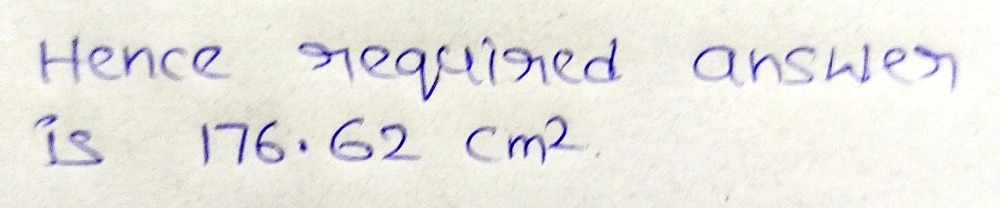 Hence required answer
is 176.62 cm²